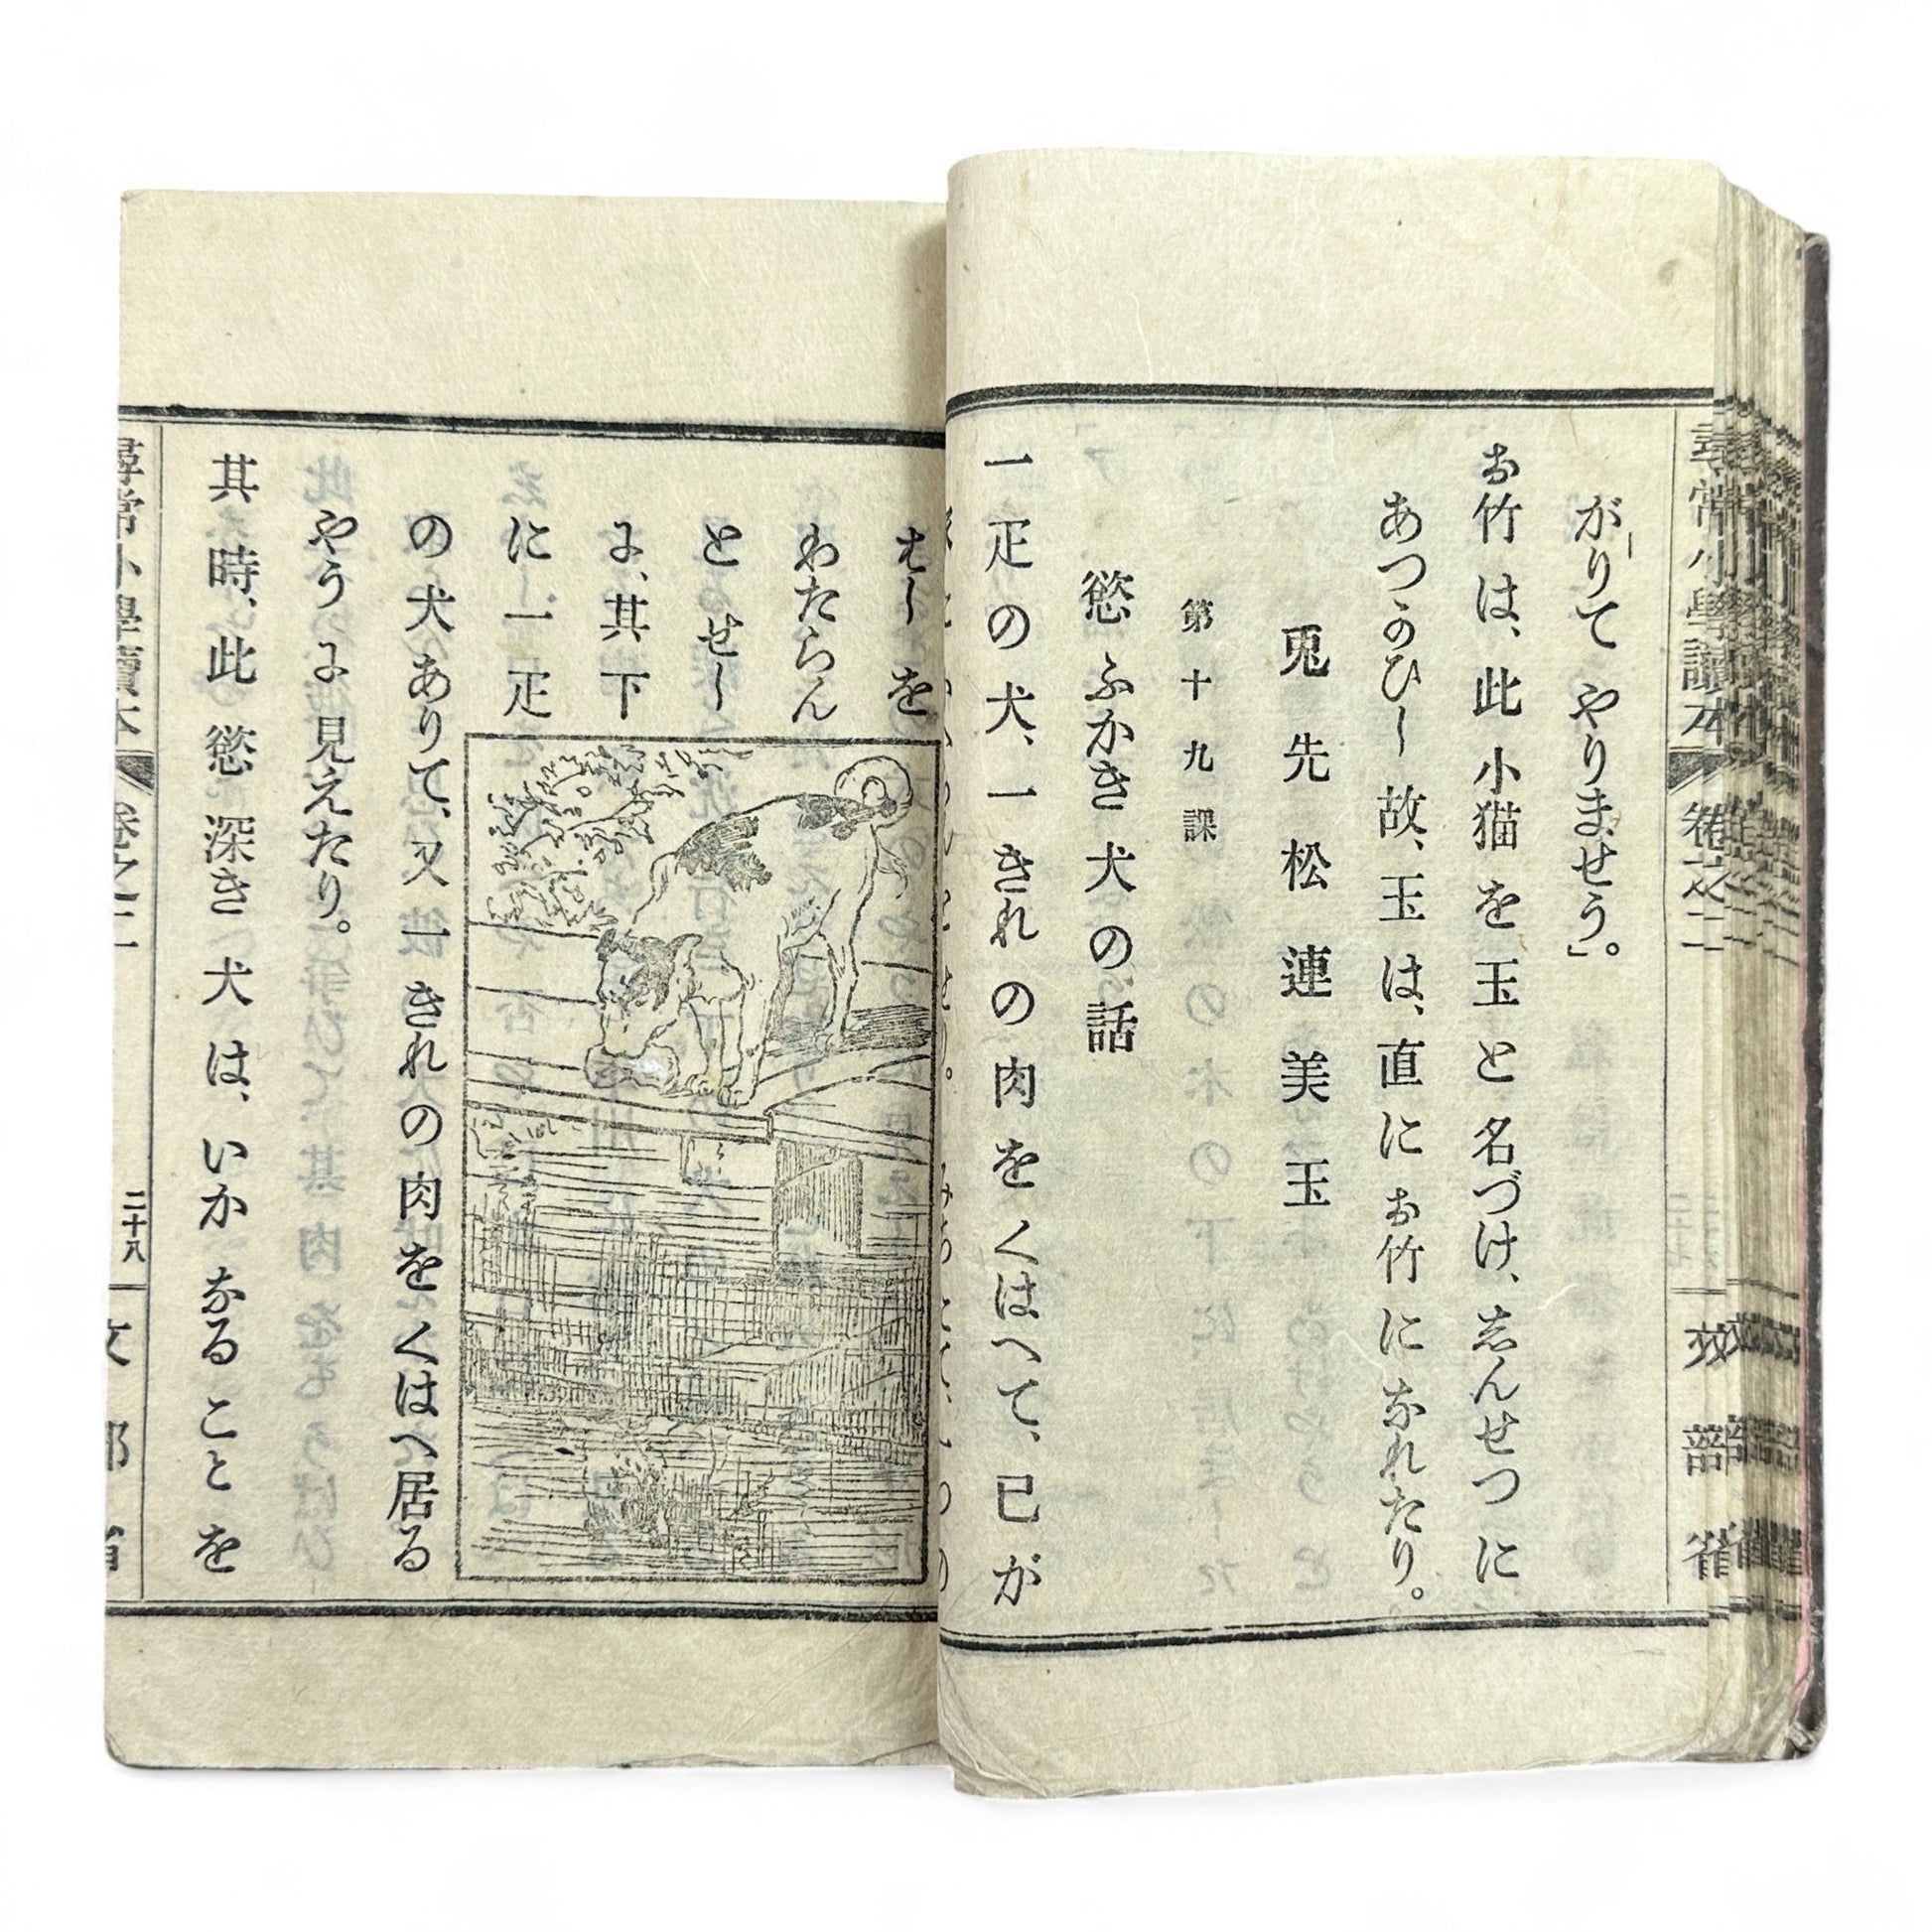 がりて やりませう。」
お竹は、此 小猫 を 玉 と 名づけ、志んせつ に
あつかひし 故、玉 は、直に お竹 に なれたり。
兎 先 松 連 美 玉
第十九課
慾 ふかき 犬 の 話
一疋 の 犬、一 きれ の 肉 を くはへて、己が
はし を
わたらん
と せし
に、其 下
に 一疋
の 犬 ありて、又 一 きれ の 肉 を くはへ 居る
やう に 見えたり。
其 時、此 慾 深き 犬 は、いか なる こと を
尋常小學讀本
卷之二
二十八
文部省
尋常小學讀本
卷之二
文部省